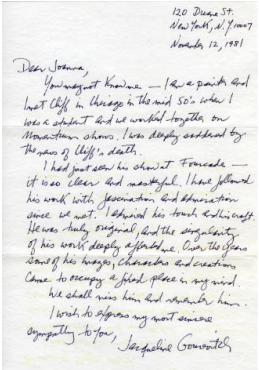 120 Duane St.
New York, N.Y. 10007
November 12, 1981
Dear Joanna,
You may not know me — I am a painter and
met Cliff in Chicago in the mid 50's when I
was a student and we worked together on
Momentum shows. I was deeply saddened by
the news of Cliff's death.
I had just seen his show at Fourcade —
it is so clear and masterful. I have followed
his work with fascination and admiration
since we met. I admired his touch and his craft.
He was truly original, and the singularity
of his work deeply affected me. Over the years
some of his images, characters and creations
came to occupy a fixed place in my mind.
We shall miss him and remember him.
I wish to express my most sincere
sympathy to you,
Jacqueline Gourevitch